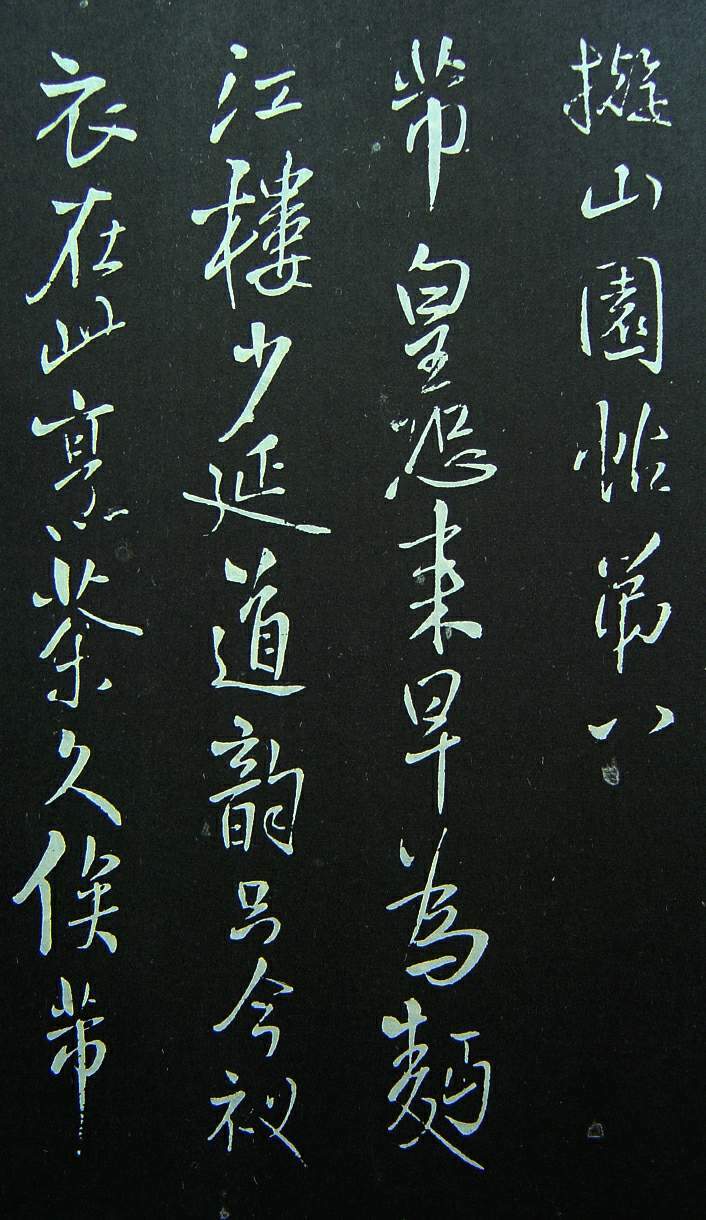 擬山園帖第八
芾皇恐来早為麵
江樓少延道韻只今衩
衣在此烹茶久俟芾